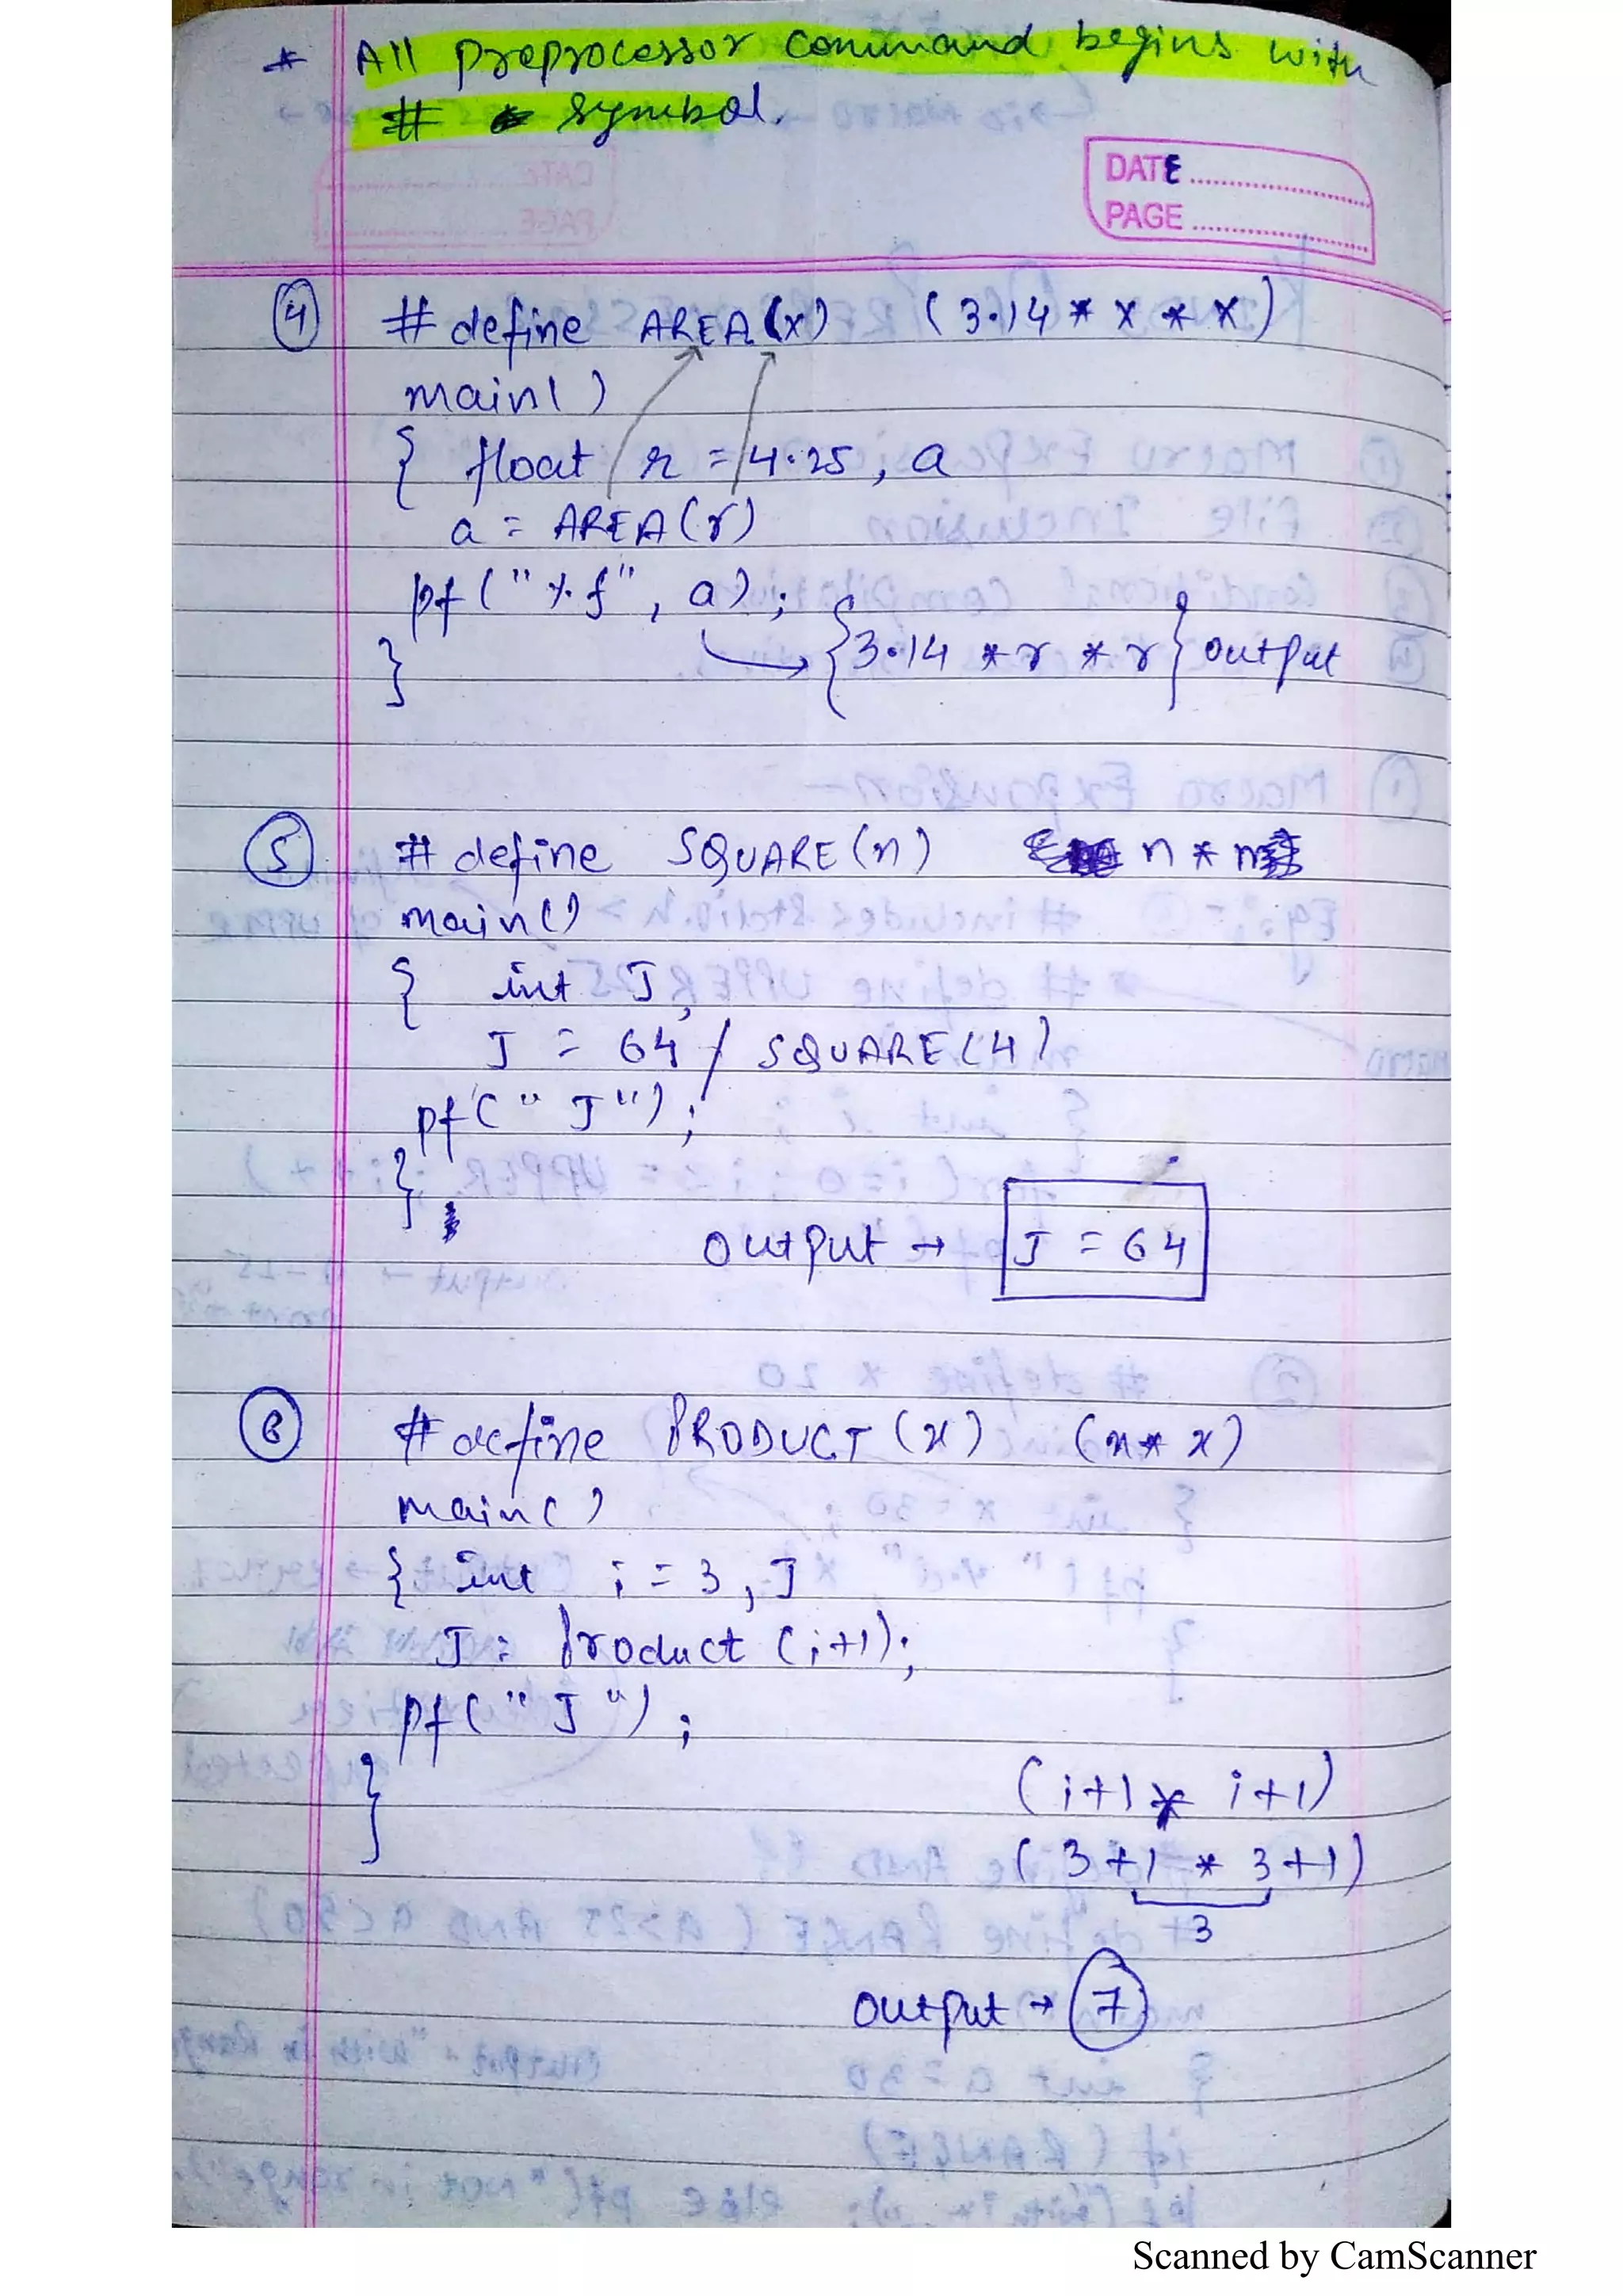 * All preprocessor command begins with
# symbol.
DATE
PAGE
④ #define AREA(x) (3.14 * x * x)
main()
{ float r = 4.25, a
a = AREA(r)
pf("%f", a);
→ {3.14 * r * r} output
}
⑤ #define SQUARE(n) n * n
main()
{ int J,
J = 64 / SQUARE(4)
pf("J");
}
output → J = 64
⑥ #define PRODUCT(x) (x * x)
main()
{ int i = 3, J
J = Product (i+1);
pf("J");
}
(i+1 * i+1)
(3+1 * 3+1)
3
output → 7
Scanned by CamScanner